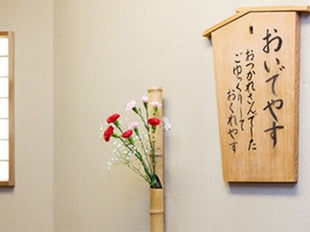 おいでやす
おつかれさんでした
ごゆっくりして
おくれやす